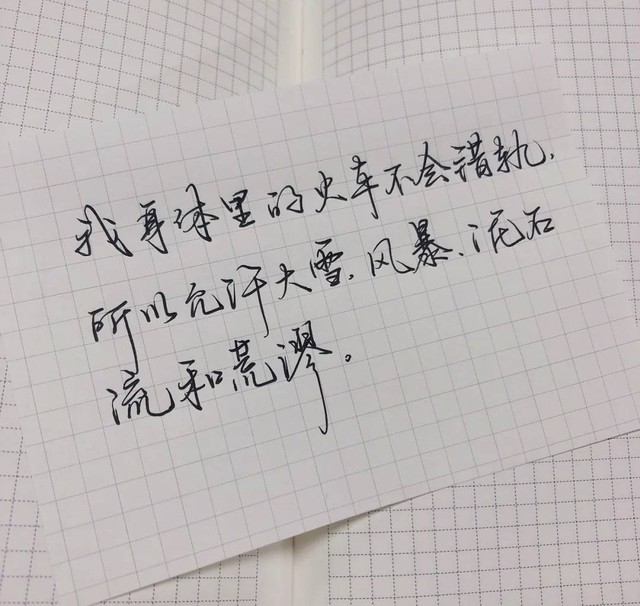 我身体里的火车不会错轨，
所以允许大雪，风暴、泥石
流和荒谬。